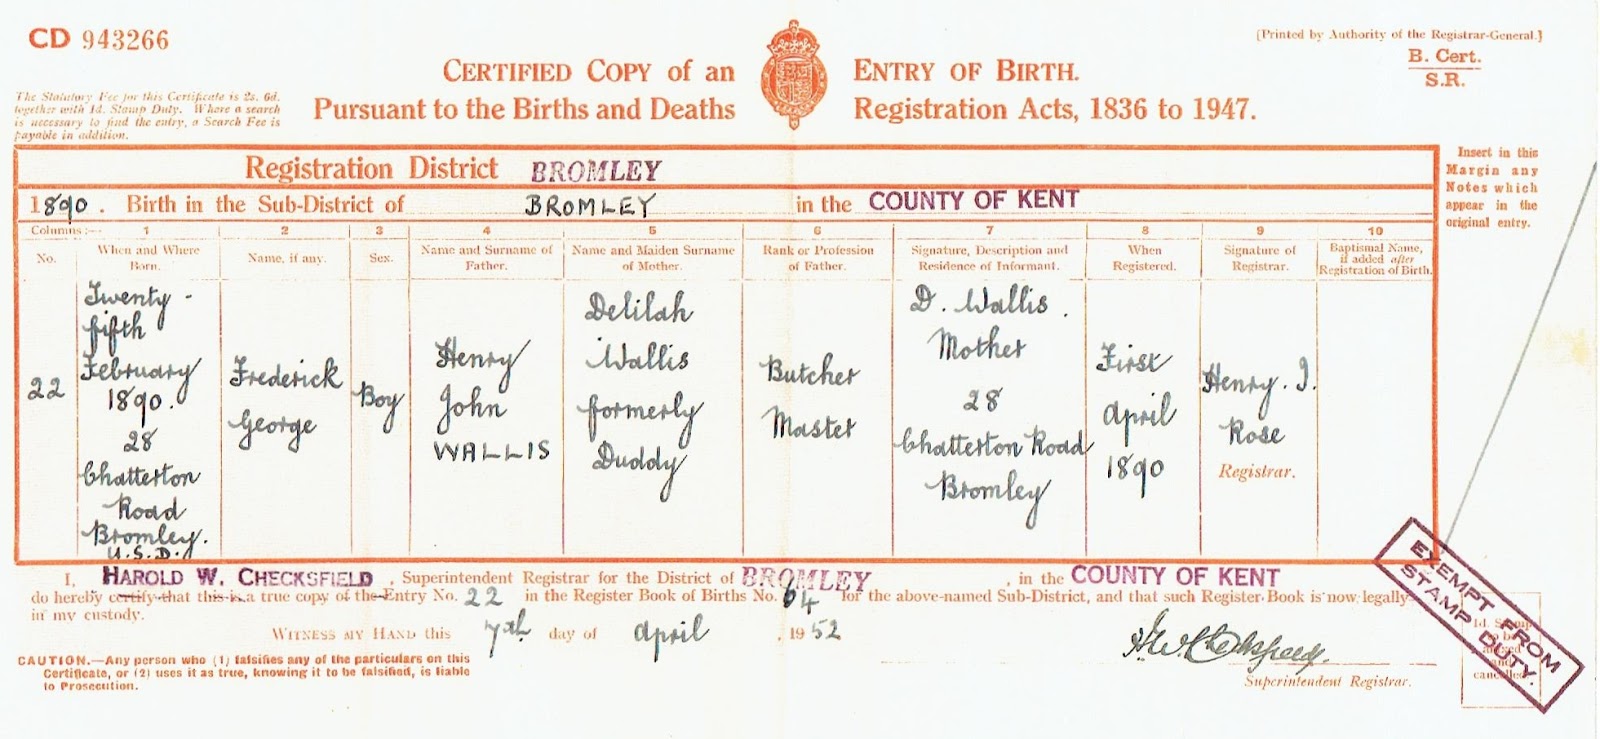 CD 943266
[Printed by Authority of the Registrar-General.]
B. Cert.
S.R.
CERTIFIED COPY of an ENTRY OF BIRTH.
Pursuant to the Births and Deaths Registration Acts, 1836 to 1947.
The Statutory Fee for this Certificate is 2s. 6d.
together with 1d. Stamp Duty. Where a search
is necessary to find the entry, a Search Fee is
payable in addition.
Insert in this
Margin any
Notes which
appear in the
original entry.
Registration District BROMLEY
1890. Birth in the Sub-District of BROMLEY in the COUNTY OF KENT
Columns:— 1 2 3 4 5 6 7 8 9 10
No.
When and Where
Born.
Name, if any.
Sex.
Name and Surname of
Father.
Name and Maiden Surname
of Mother.
Rank or Profession
of Father.
Signature, Description and
Residence of Informant.
When
Registered.
Signature of
Registrar.
Baptismal Name,
if added after
Registration of Birth.
22
Twenty-
fifth
February
1890.
28
Chatterton
Road
Bromley.
U.S.D.
Frederick
George
Boy
Henry
John
WALLIS
Delilah
Wallis
formerly
Duddy
Butcher
Master
D. Wallis.
Mother
28
Chatterton Road
Bromley
First
April
1890
Henry. I.
Rose
Registrar.
I, HAROLD W. CHECKSFIELD, Superintendent Registrar for the District of BROMLEY, in the COUNTY OF KENT
do hereby certify that this is a true copy of the Entry No. 22 in the Register Book of Births No. 64 for the above-named Sub-District, and that such Register Book is now legally
in my custody.
WITNESS MY HAND this 7th day of April, 1952
H. W. Checksfield.
Superintendent Registrar.
CAUTION.—Any person who (1) falsifies any of the particulars on this
Certificate, or (2) uses it as true, knowing it to be falsified, is liable
to Prosecution.
EXEMPT FROM
STAMP DUTY.